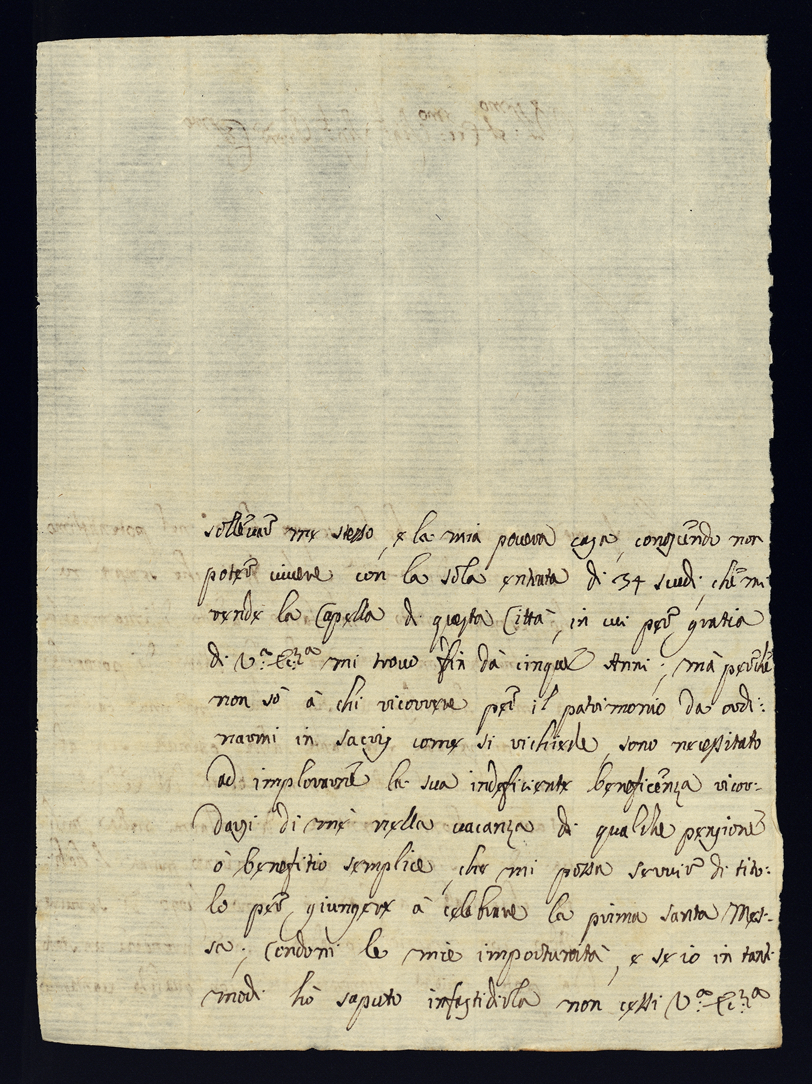 solleuar me stesso, e la mia pouera casa, non
poter uiuere con la sola entrata di 34 scudi, che mi
rende la Capella di questa Città, in cui per gratia
di V.ª Ecc.ª mi trouo fin dà cinque Anni; mà perche
non sò à chi ricorrere per il patrimonio da ordi:
narmi in sacris come si richiede, sono necessitato
ad implorarne la sua indeficiente beneficenza ricor-
darsi di mè nella uacanza di qualche pensione
ò benefitio semplice, che mi possa seruir di tito:
lo per giungere à celebrare la prima santa Mes-
sa; Condoni le mie importunità, e se io in tanti
modi hò saputo infastidirla non cessi V.ª Ecc.ª